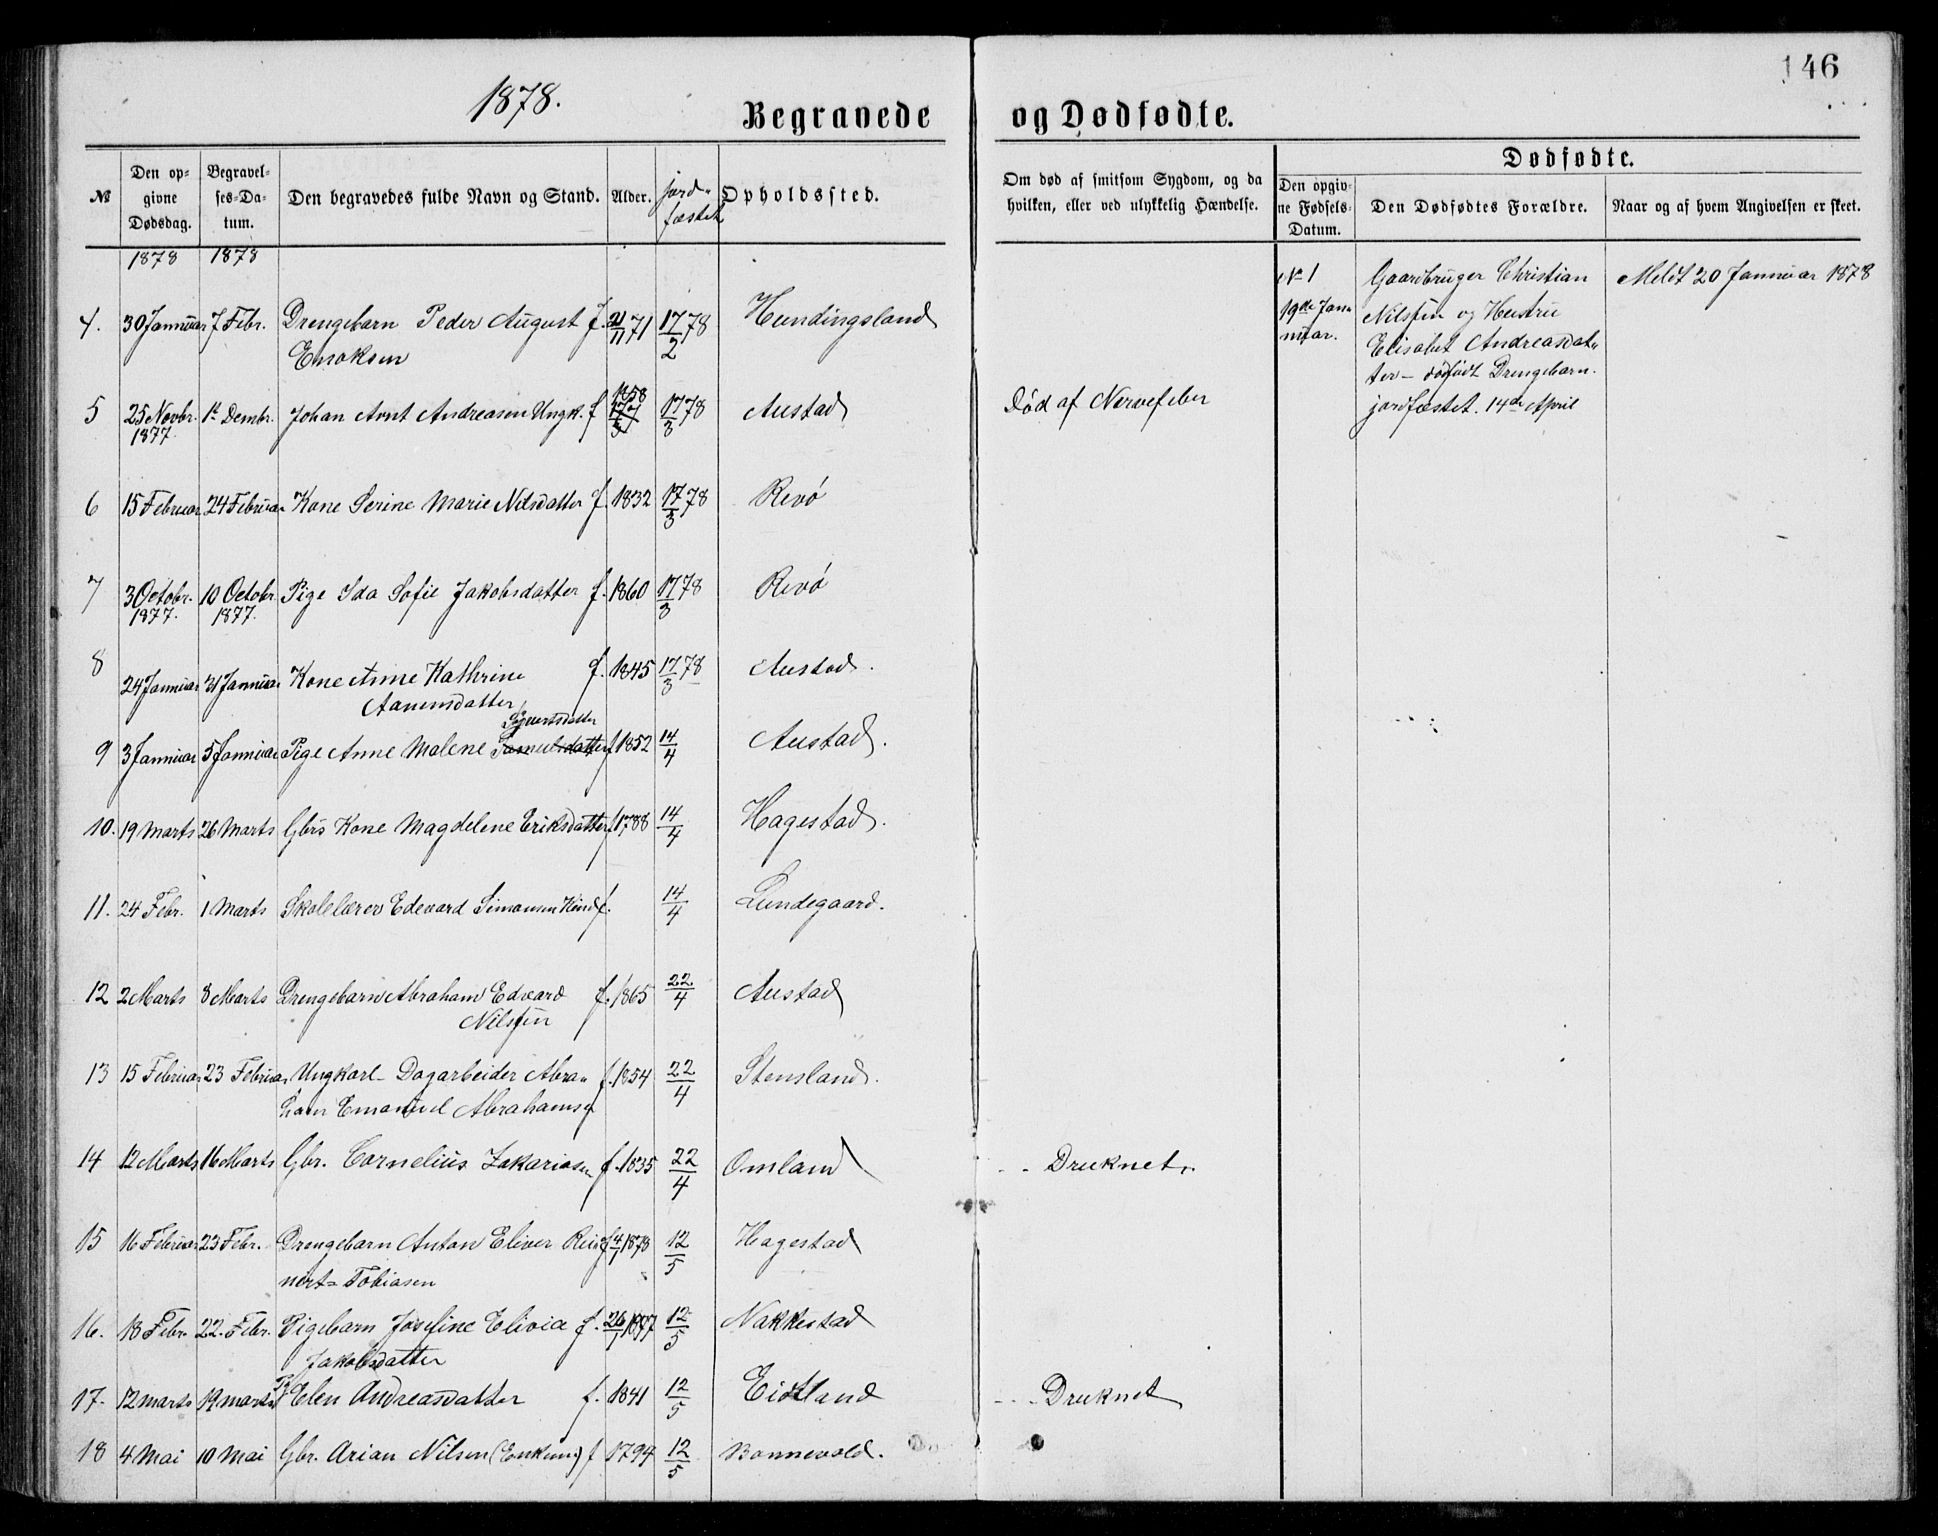 146
1878.
Begravede og Dødfødte.
№ Den opgivne Dødsdag. Begravelses-Datum. Den begravedes fulde Navn og Stand. Alder. jordfæstet Opholdssted. Om død af smitsom Sygdom, og da hvilken, eller ved ulykkelig Hændelse.
Dødfødte.
Den opgivne Fødsels-Datum. Den Dødfødtes Forældre. Naar og af hvem Angivelsen er skeet.
1878 1878
4. 30 Januar 7 Febr. Drengebarn Peder August f. 21/11 71 17/2 78 Hundingsland
Enoksen
5 25 Novbr. 1ste Dembr. Johan Arnt Andreasen Ungk. f 1858 17/3 78 Austad Død af Nervefeber
1877.
6 15 Februar 24 Februar Kone Serine Marie Nilsdatter f. 1832 17/3 78 Revø
7 3 Octobr. 10 Octobr Pige Ida Sofie Jakobsdatter f. 1860 17/3 78 Revø
1877. 1877.
8 24 Januar 31 Januar Kone Anne Kathrine f. 1845 17/3 78 Austad.
Aanensdatter
Syvertsdatter
9 3 Januar 5 Januar Pige Anne Malene Samuelsdatter f 1852 14/4 Austad.
10. 19 Marts 26 Marts Gbrs Kone Magdelene Eriksdatter f 1788 14/4 Hagestad.
11. 24 Febr. 1 Marts Skolelærer Edevard Simonsen f. 14/4 Lundegaard.
12 2 Marts 8 Marts Drengebarn Abraham Edvard f. 1865 22/4 Austad
Nilsen
13 15 Februar 23 Februar Ungkarl- Dagarbeider Abra" f. 1854 22/4 Stensland.
ham Emanuel Abrahamsen
14 12 Marts 16 Marts Gbr. Cornelius Zakariasen f. 1835 22/4 Omland - - Druknet.
15 16 Februar 23 Febr. Drengebarn Anton Eliver Rei= f 4/1 1878 12/5 Hagestad
nert= Tobiasen
16. 18 Febr. 22. Febr. Pigebarn Josefine Elivia f. 26/1 1877 12/5 Nakkestad
Jakobsdatter
17. 12 marts 19 marts Elen Andreasdatter f. 1841 12/5 Eidsland - - - Druknet
18 4 Mai 10 Mai Gbr. Arian Nilsen (Enkem) f 1794 12/5 Bonnevold.
No 1
19de Januar.
Gaardbruger Christian
Nilsen og Hustru
Elisabet Andreasdat"
ter - dødfødt Drengebarn.
jordfæstet. 14de April
Meldt 20 Januar 1878